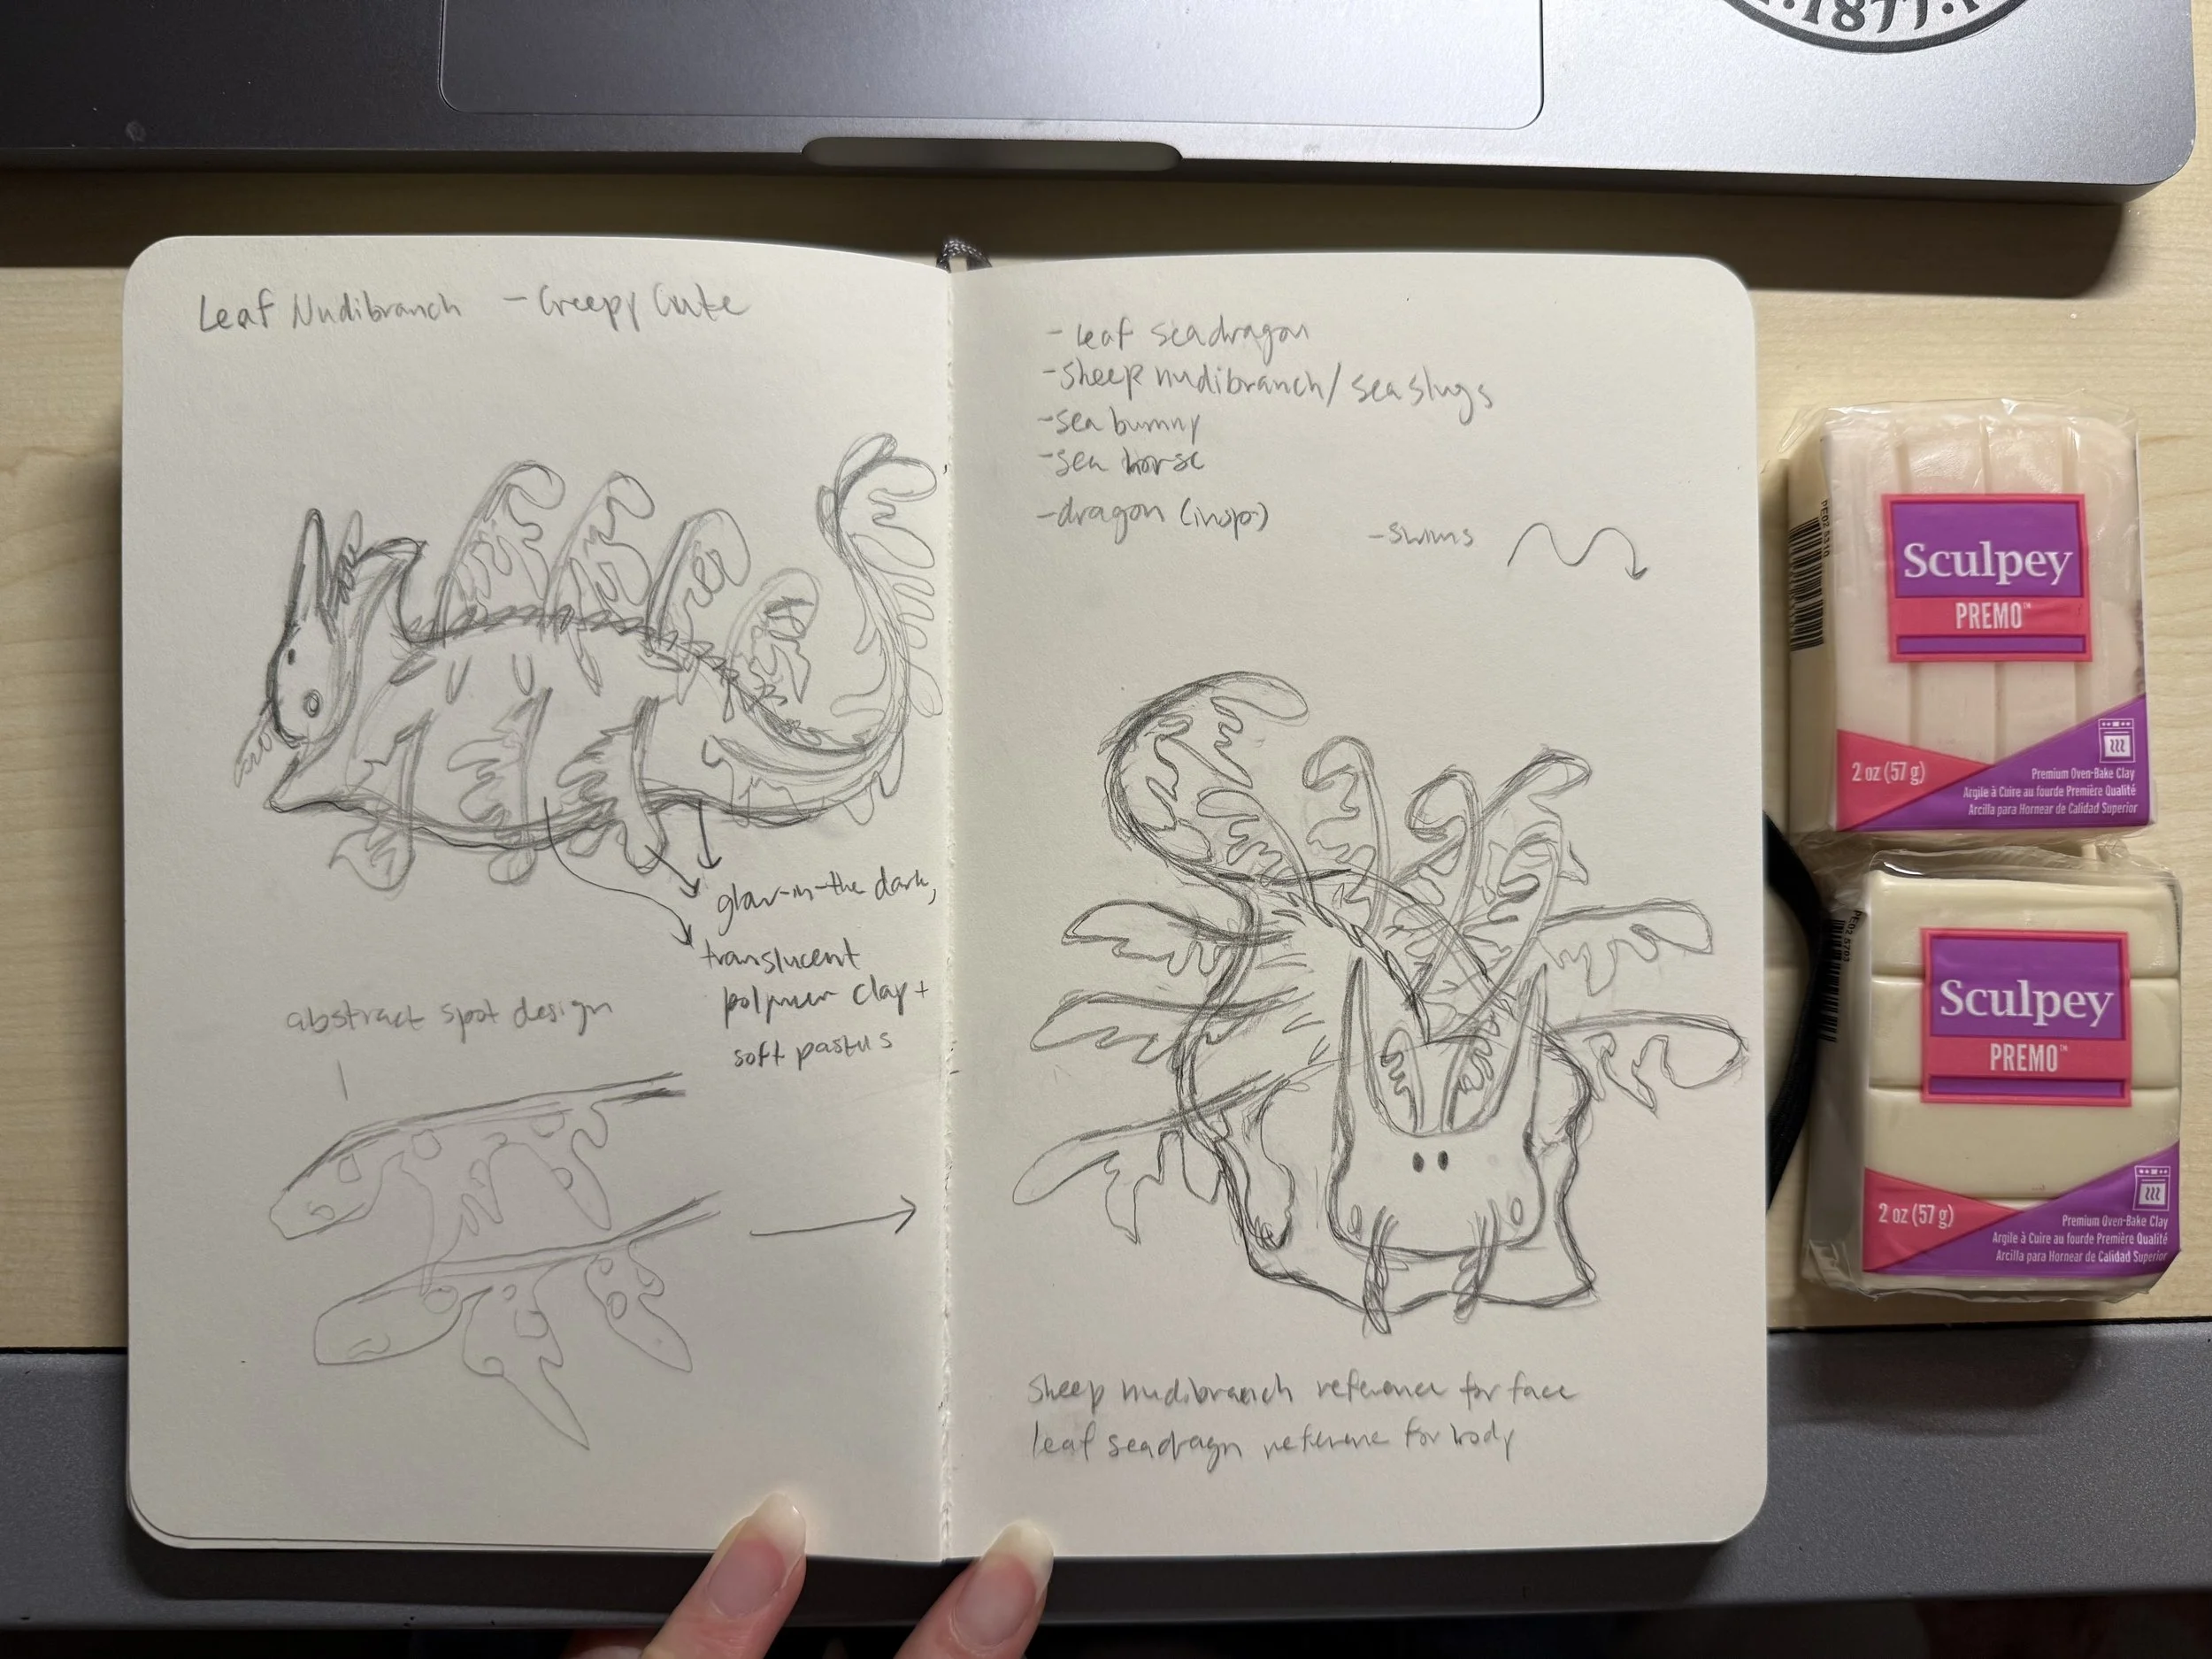 ·1877·
Leaf Nudibranch - Creepy Cute
glow-in-the dark,
translucent
polymer clay +
soft pastels
abstract spot design
- leaf seadragon
- sheep nudibranch / sea slugs
- sea bunny
- sea horse
- dragon (insp)
- swims
sheep nudibranch reference for face
leaf seadragn reference for body
Sculpey
PREMO™
2 oz (57 g)
Premium Oven-Bake Clay
Argile à Cuire au fourde Première Qualité
Arcilla para Hornear de Calidad Superior
PE02 5310
Sculpey
PREMO™
2 oz (57 g)
Premium Oven-Bake Clay
Argile à Cuire au fourde Première Qualité
Arcilla para Hornear de Calidad Superior